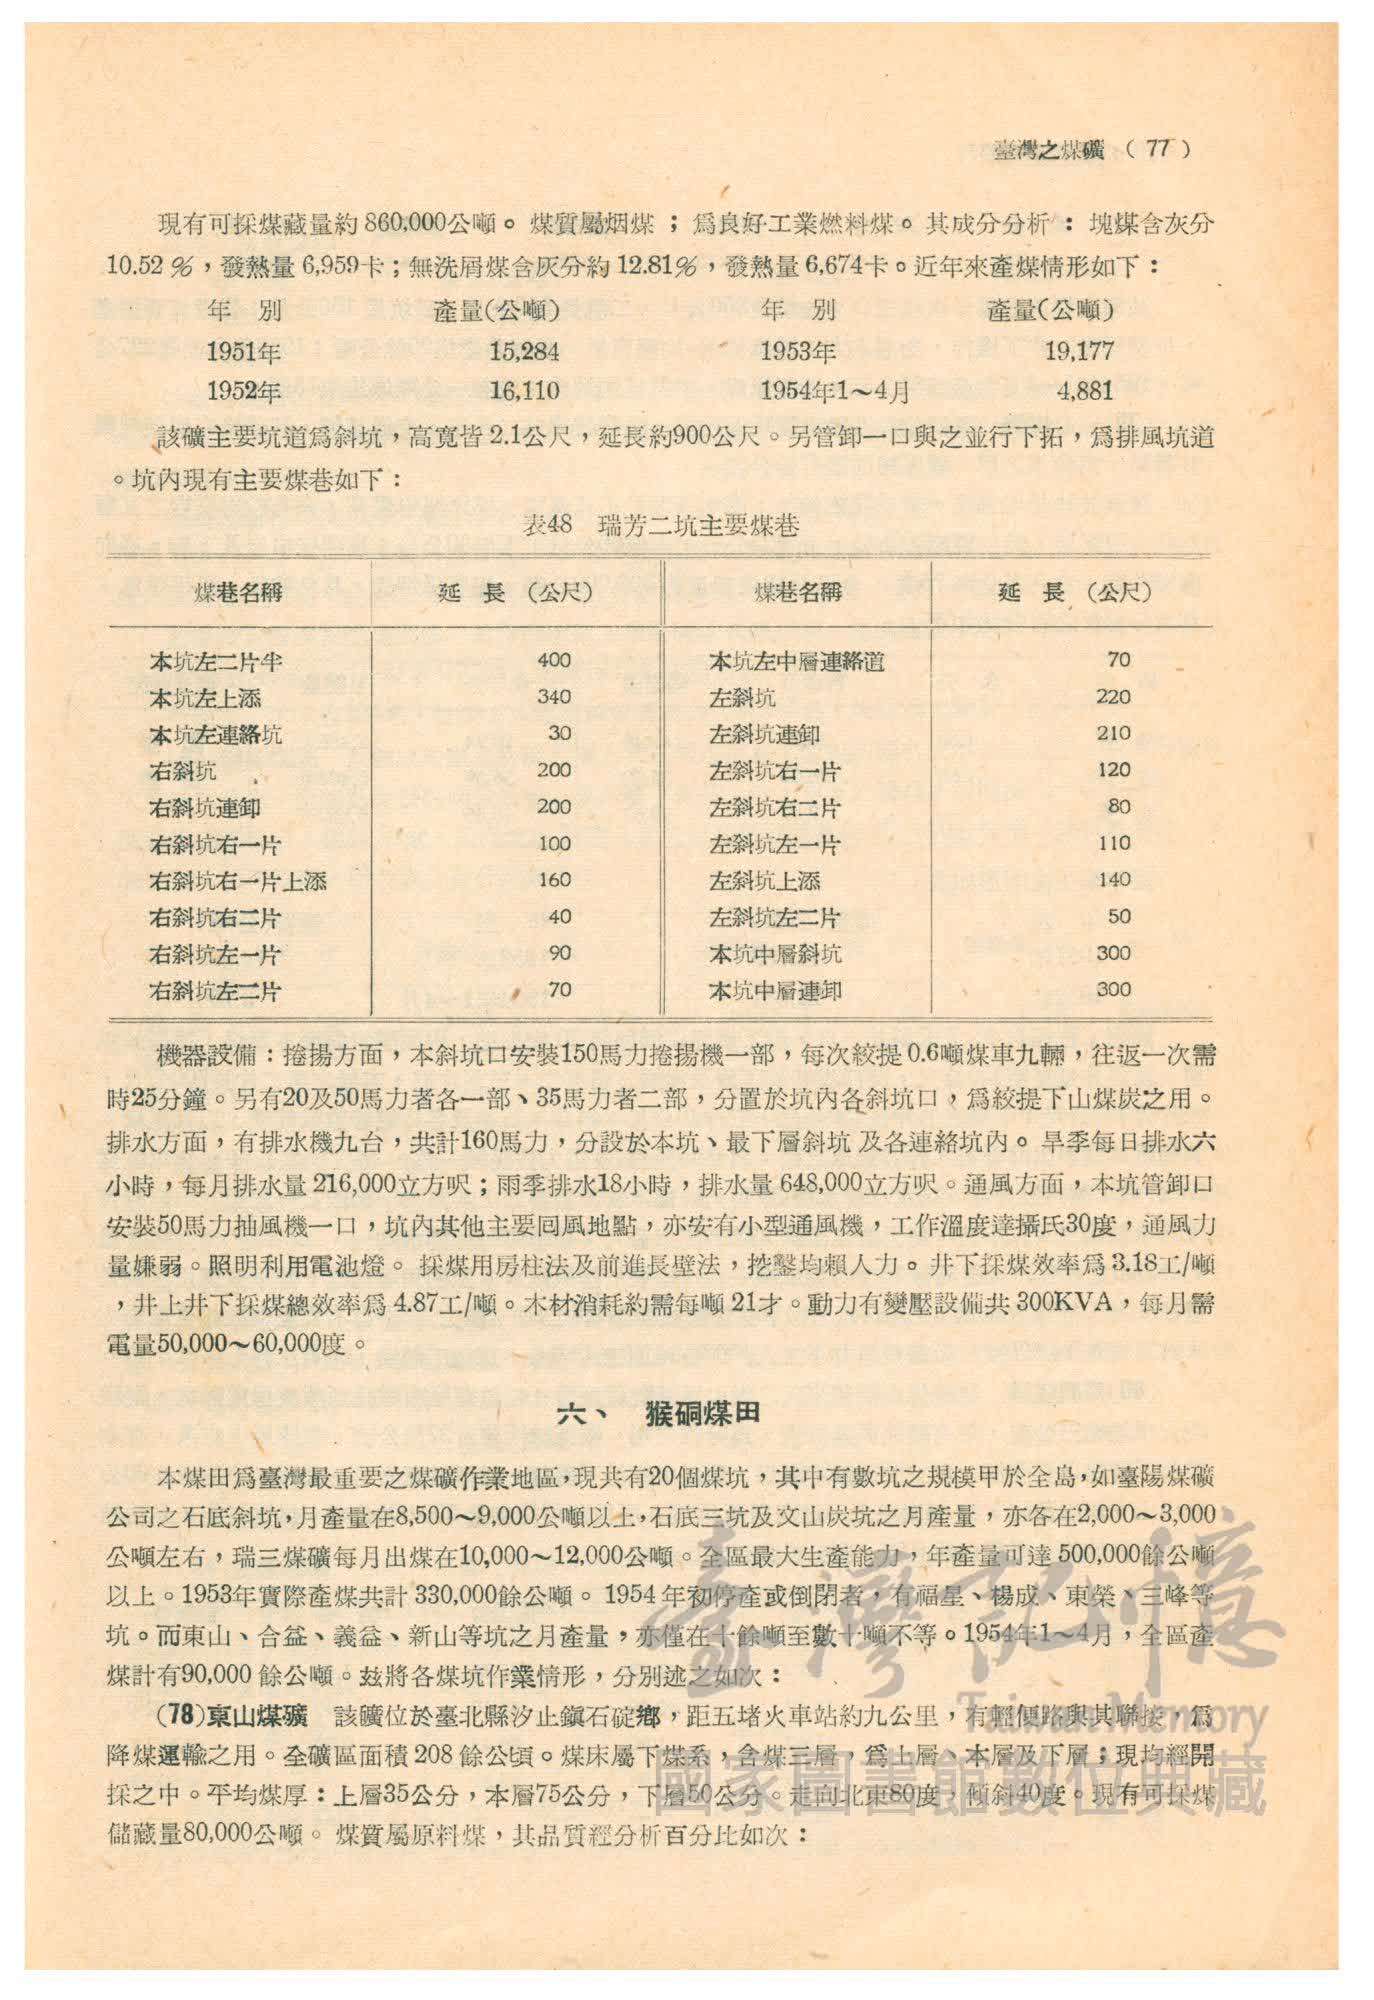 臺灣之煤礦（77）
現有可採煤藏量約860,000公噸。煤質屬烟煤；爲良好工業燃料煤。其成分分析：塊煤含灰分
10.52％，發熱量6,959卡；無洗屑煤含灰分約12.81％，發熱量6,674卡。近年來產煤情形如下：
年　別　產量(公噸)　年　別　產量(公噸)
1951年　15,284　1953年　19,177
1952年　16,110　1954年1～4月　4,881
該礦主要坑道爲斜坑，高寬皆2.1公尺，延長約900公尺。另管卸一口與之並行下拓，爲排風坑道
。坑內現有主要煤巷如下：
表48　瑞芳二坑主要煤巷
煤巷名稱　延　長　(公尺)　煤巷名稱　延　長　(公尺)
本坑左二片半　400　本坑左中層連絡道　70
本坑左上添　340　左斜坑　220
本坑左連絡坑　30　左斜坑連卸　210
右斜坑　200　左斜坑右一片　120
右斜坑連卸　200　左斜坑右二片　80
右斜坑右一片　100　左斜坑左一片　110
右斜坑右一片上添　160　左斜坑上添　140
右斜坑右二片　40　左斜坑左二片　50
右斜坑左一片　90　本坑中層斜坑　300
右斜坑左二片　70　本坑中層連卸　300
機器設備：捲揚方面，本斜坑口安裝150馬力捲揚機一部，每次絞提0.6噸煤車九輛，往返一次需
時25分鐘。另有20及50馬力者各一部、35馬力者二部，分置於坑內各斜坑口，爲絞提下山煤炭之用。
排水方面，有排水機九台，共計160馬力，分設於本坑、最下層斜坑及各連絡坑內。旱季每日排水六
小時，每月排水量216,000立方呎；雨季排水18小時，排水量648,000立方呎。通風方面，本坑管卸口
安裝50馬力抽風機一口，坑內其他主要囘風地點，亦安有小型通風機，工作溫度達攝氏30度，通風力
量嫌弱。照明利用電池燈。採煤用房柱法及前進長壁法，挖鑿均賴人力。井下採煤效率爲3.18工/噸
，井上井下採煤總效率爲4.87工/噸。木材消耗約需每噸21才。動力有變壓設備共300KVA，每月需
電量50,000～60,000度。
六、　猴硐煤田
本煤田爲臺灣最重要之煤礦作業地區，現共有20個煤坑，其中有數坑之規模甲於全島，如臺陽煤礦
公司之石底斜坑，月產量在8,500～9,000公噸以上，石底三坑及文山炭坑之月產量，亦各在2,000～3,000
公噸左右，瑞三煤礦每月出煤在10,000～12,000公噸。全區最大生產能力，年產量可達500,000餘公噸
以上。1953年實際產煤共計330,000餘公噸。1954年初停產或倒閉者，有福星、楊成、東榮、三峰等
坑。而東山、合益、義益、新山等坑之月產量，亦僅在十餘噸至數十噸不等。1954年1～4月，全區產
煤計有90,000餘公噸。茲將各煤坑作業情形，分別述之如次：
(78)東山煤礦　該礦位於臺北縣汐止鎭石碇鄉，距五堵火車站約九公里，有輕便路與其聯接，爲
降煤運輸之用。全礦區面積208餘公頃。煤床屬下煤系，含煤三層，爲上層、本層及下層；現均經開
採之中。平均煤厚：上層35公分，本層75公分，下層50公分。走向北東80度，傾斜40度。現有可採煤
儲藏量80,000公噸。煤質屬原料煤，其品質經分析百分比如次：
臺灣記憶
Taiwan Memory
國家圖書館數位典藏